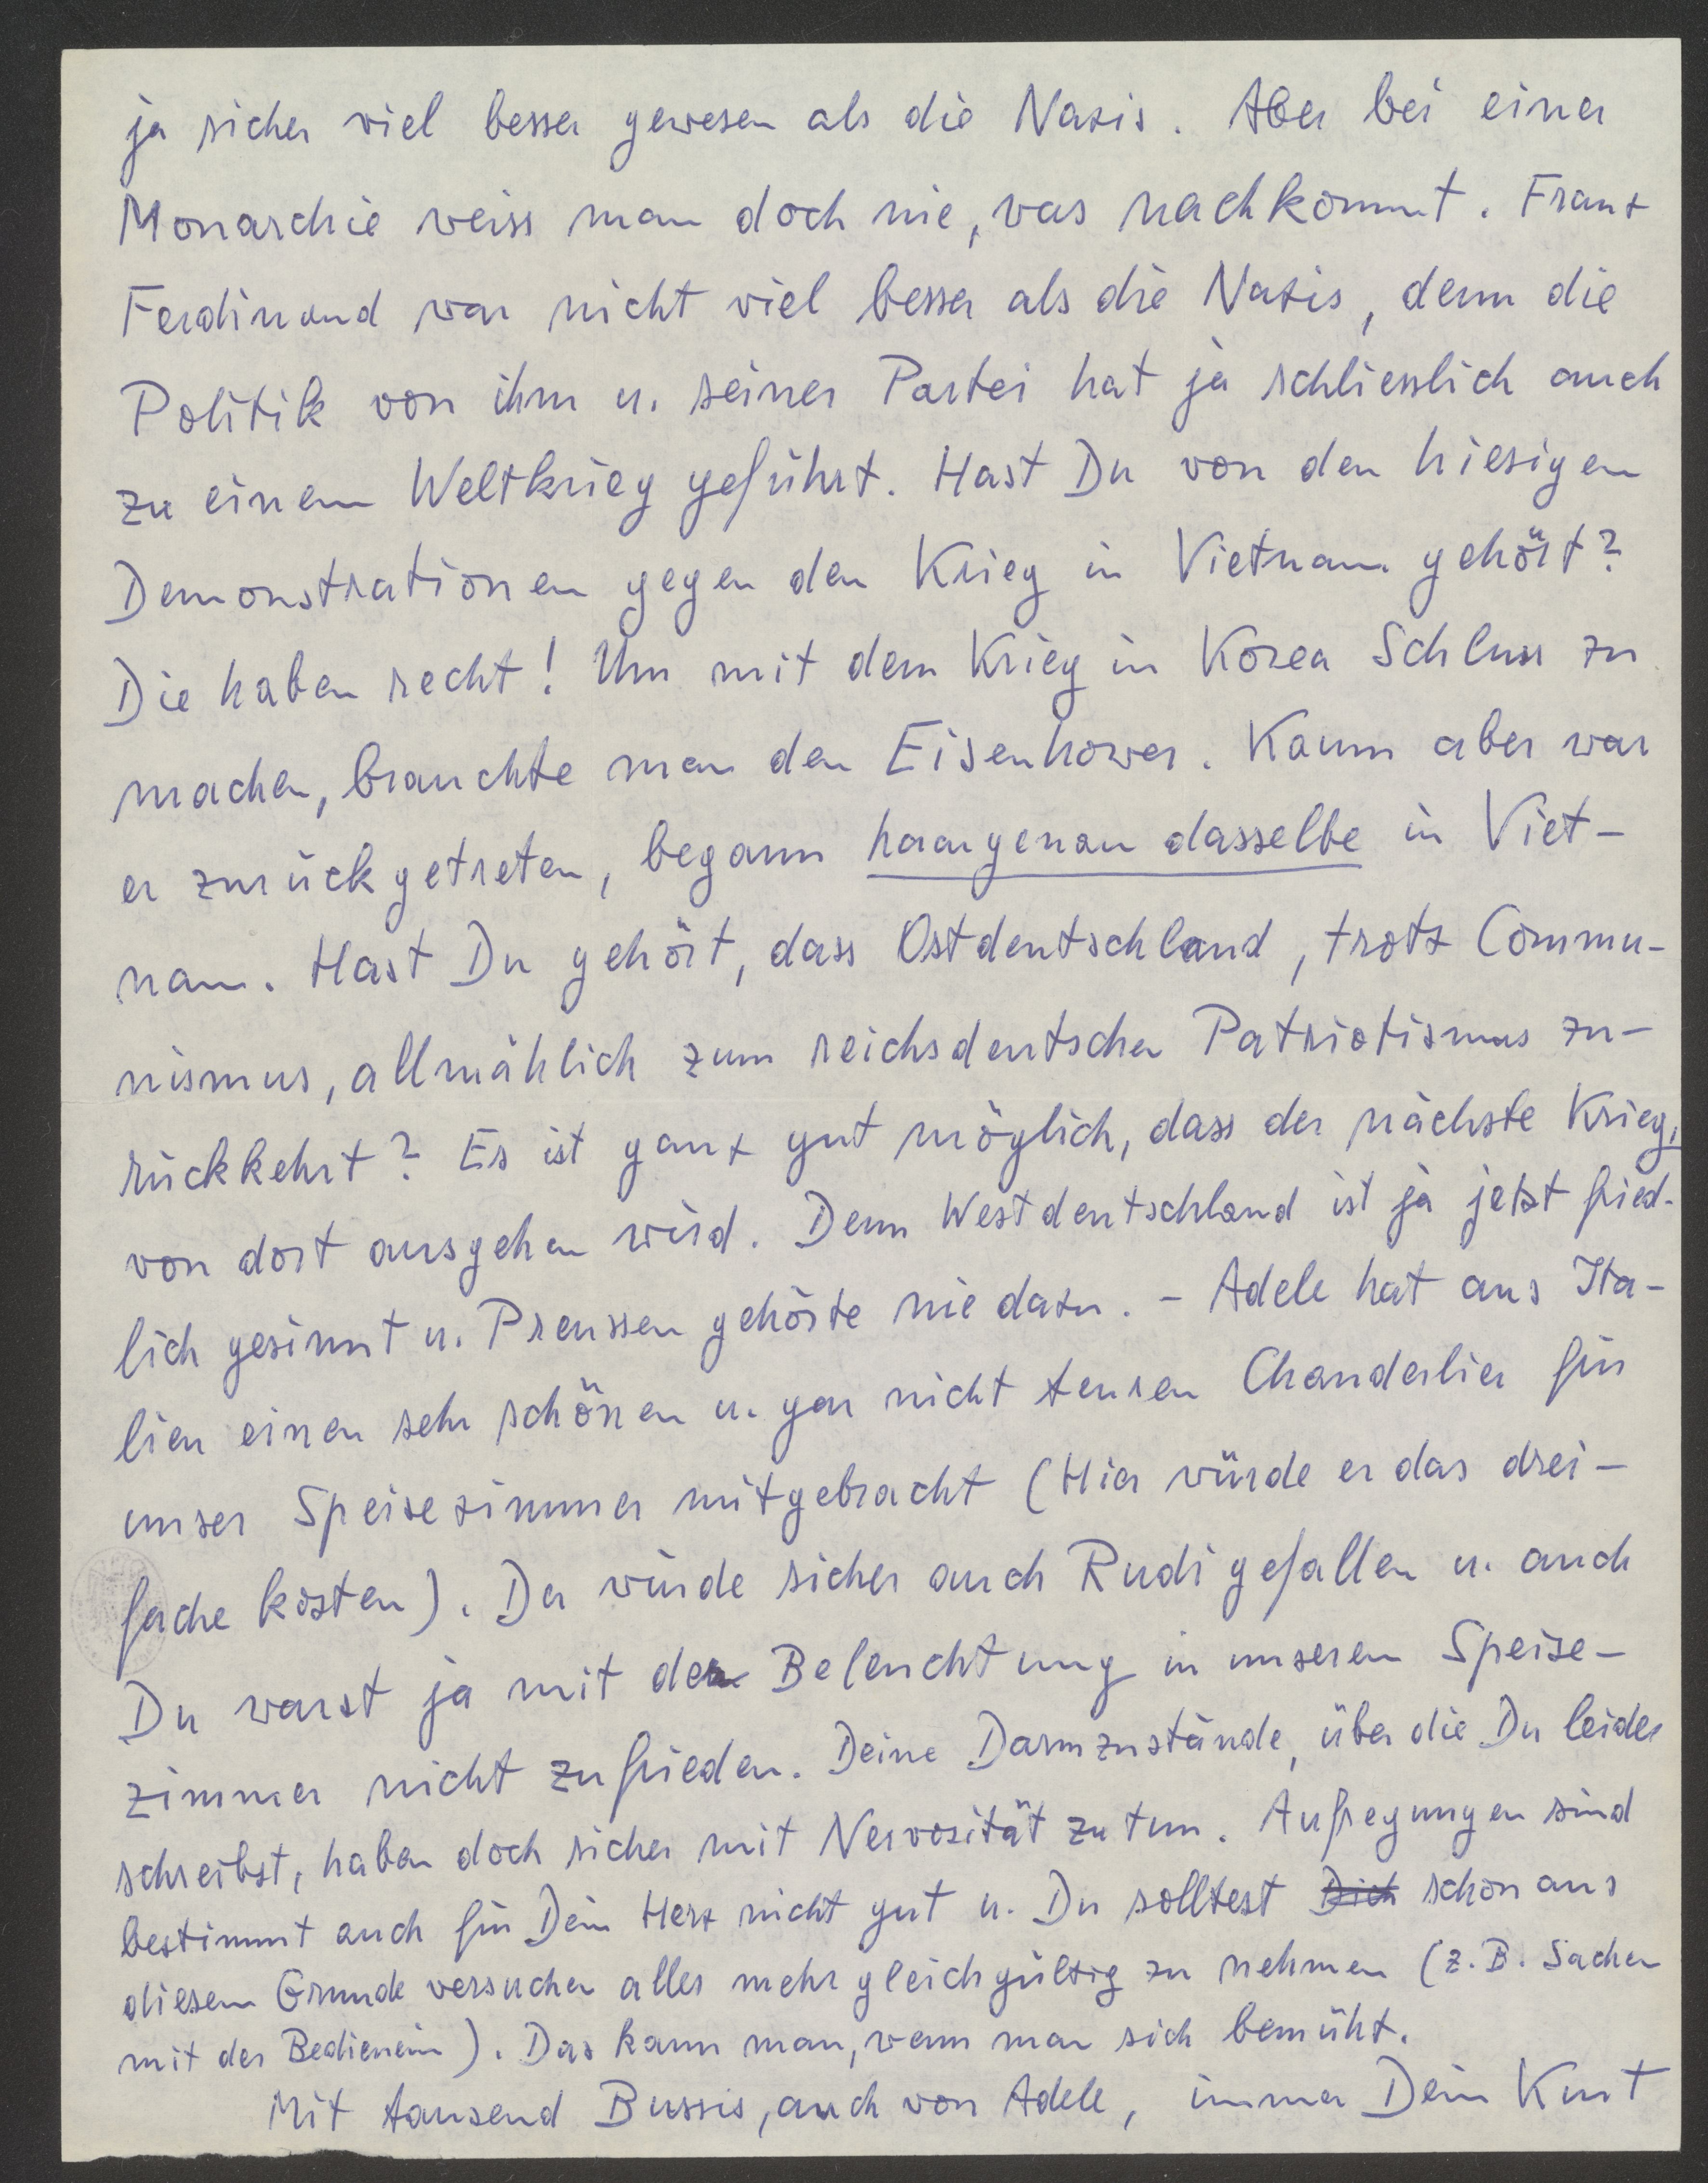 ja sicher viel besser gewesen als die Nazis. Aber bei einer
Monarchie weiss man doch nie, was nachkommt. Franz
Ferdinand war nicht viel besser als die Nazis, denn die
Politik von ihm u. seiner Partei hat ja schliesslich auch
zu einem Weltkrieg geführt. Hast Du von den hiesigen
Demonstrationen gegen den Krieg in Vietnam gehört?
Die haben recht! Um mit dem Krieg in Korea Schluss zu
machen, brauchte man den Eisenhower. Kaum aber war
er zurückgetreten, begann haargenau dasselbe in Viet-
nam. Hast Du gehört, dass Ostdeutschland, trotz Commu-
nismus, allmählich zum reichsdeutschen Patriotismus zu-
rückkehrt? Es ist ganz gut möglich, dass der nächste Krieg,
von dort ausgehen wird. Denn Westdeutschland ist ja jetzt fried-
lich gesinnt u. Preussen gehörte nie dazu. - Adele hat aus Ita-
lien einen sehr schönen u. gar nicht teuren Chanderlier für
unser Speisezimmer mitgebracht (Hier würde er das drei-
fache kosten). Der würde sicher auch Rudi gefallen u. auch
Du warst ja mit der Beleuchtung in unserem Speise-
zimmer nicht zufrieden. Deine Darmzustände, über die Du leider
schreibst, haben doch sicher mit Nervosität zu tun. Aufregungen sind
bestimmt auch für Dein Herz nicht gut u. Du solltest Dich schon aus
diesem Grunde versuchen alles mehr gleichgültig zu nehmen (z.B. Sachen
mit der Bedienerin). Das kann man, wenn man sich bemüht.
Mit tausend Bussis, auch von Adele, immer Dein Kurt